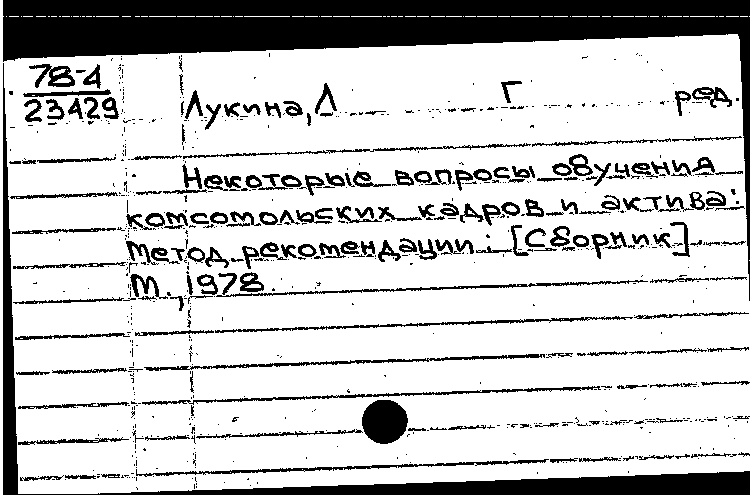 78-4
23429
Лукина, Л Г ред.
Некоторые вопросы обучения
комсомольских кадров и актива:
Метод. рекомендации: [Сборник]
М., 1978.